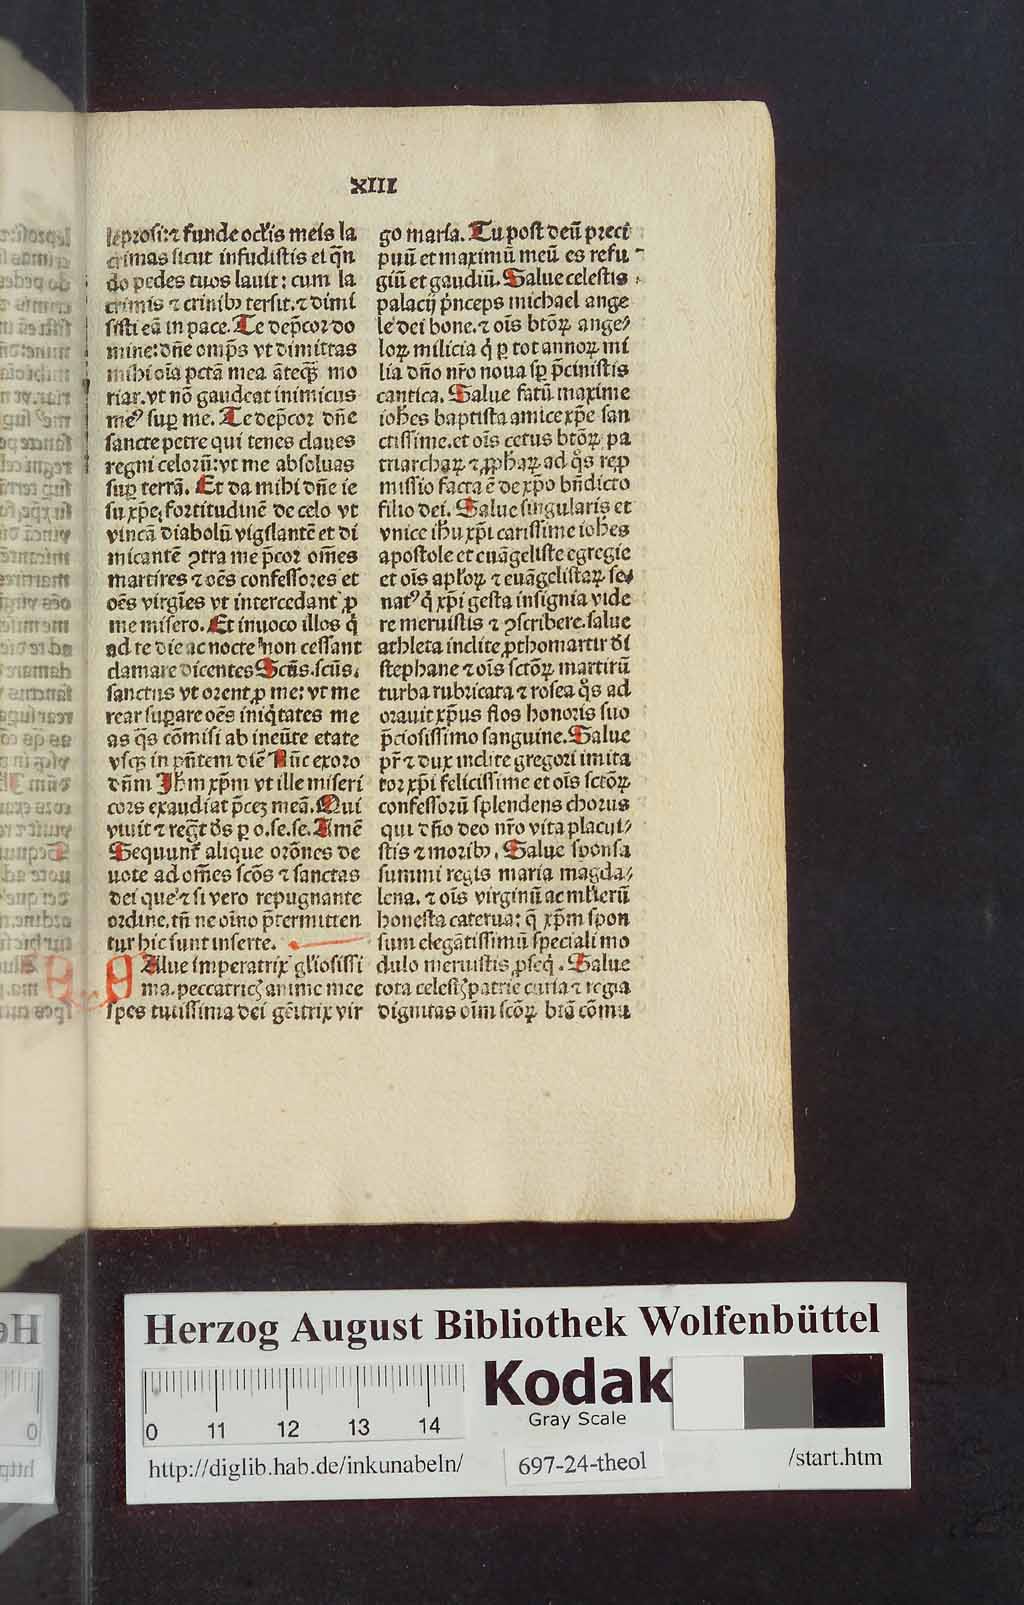 XIII
leprosi:⁊ funde oculis meis la
crimas sicut infudistis ei qn̄
do pedes tuos lauit: cum la
crimis ⁊ crinibꝫ tersit.⁊ dimi
sisti eā in pace. Te dep̄cor do
mine: dn̄e omp̄s vt dimittas
mihi oīa pctā mea āteqꝫ mo
riar.vt nō gaudeat inimicus
meꝰ suꝑ me. Te dep̄cor dn̄e
sancte petre qui tenes claues
regni celorū: vt me absoluas
suꝑ terrā. Et da mihi dn̄e ie
su xp̄e, fortitudinē de celo vt
vincā diabolū vigilantē et di
micantē ꝯtra me p̄cor om̄es
martires ⁊ oēs confessores et
oēs virgīes vt intercedant ꝓ
me misero. Et inuoco illos q̇
ad te die ac nocte non cessant
clamare dicentes Scūs.scūs.
sanctus vt orent ꝓ me: vt me
rear suꝑare oēs iniq̇tates me
as q̄s cōmisi ab ineūte etate
vsqꝫ in pn̄tem diē Nūc exoro
dn̄m Jhm xp̄m vt ille miseri
cors exaudiat p̄ceꝫ meā. Qui
viuit ⁊ regt̄ ds̄ p o.se.se. Amē
Sequunt̄ alique orōnes de
uote ad om̄es scōs ⁊ sanctas
dei que ⁊ si vero repugnante
ordine.tn̄ ne oīno p̄termitten
tur hic sunt inserte.
SAlue imperatrix gl'iosissi
ma.peccatricꝭ anime mee
spes tutissima dei gēitrix vir
go maria. Tu post deū preci
puū et maximū meū es refu
giū et gaudiū. Salue celestis
palacij p̄nceps michael ange
le dei bone.⁊ oīs btōꝝ ange⸗
loꝝ milicia q̇ ꝑ tot annoꝝ mi
lia dn̄o nr̄o noua sꝑ p̄cinistis
cantica. Salue fatū maxime
ioh̄es baptista amice xp̄e san
ctissime.et oīs cetus btōꝝ pa
triarchaꝝ ⁊ ꝓphaꝝ ad q̊s reꝑ
missio facta ē de xp̄o bn̄dicto
filio dei. Salue singularis et
vnice ih̄u xp̄i carissime ioh̄es
apostole et euāgeliste egregie
et oīs apl'oꝝ ⁊ euāgelistaꝝ se⸗
natꝰ q̇ xp̄i gesta insignia vide
re meruistis ⁊ ꝯscribere. salue
athleta inclite ꝓthomartir di
stephane ⁊ oīs sctōꝝ martirū
turba rubricata ⁊ rosea q̊s ad
orauit xp̄us flos honoris suo
p̄ciosissimo sanguine. Salue
pr̄ ⁊ dux inclite gregori imita
tor xp̄i felicissime et oīs sctōꝝ
confessorū splendens chorus
qui dn̄o deo nr̄o vita placui⸗
stis ⁊ moribꝫ. Salue sponsa
summi regis maria magda⸗
lena.⁊ oīs virginū ac mlierū
honesta caterua: q̄ xp̄m spon
sum elegātissimū speciali mo
dulo meruistis ꝓseq̇. Salue
tota celestꝭ patrie curia ⁊ regia
dignitas oīm scōꝝ btā cōmu
Herzog August Bibliothek Wolfenbüttel
0 11 12 13 14
Kodak
Gray Scale
http://diglib.hab.de/inkunabeln/ 697-24-theol /start.htm